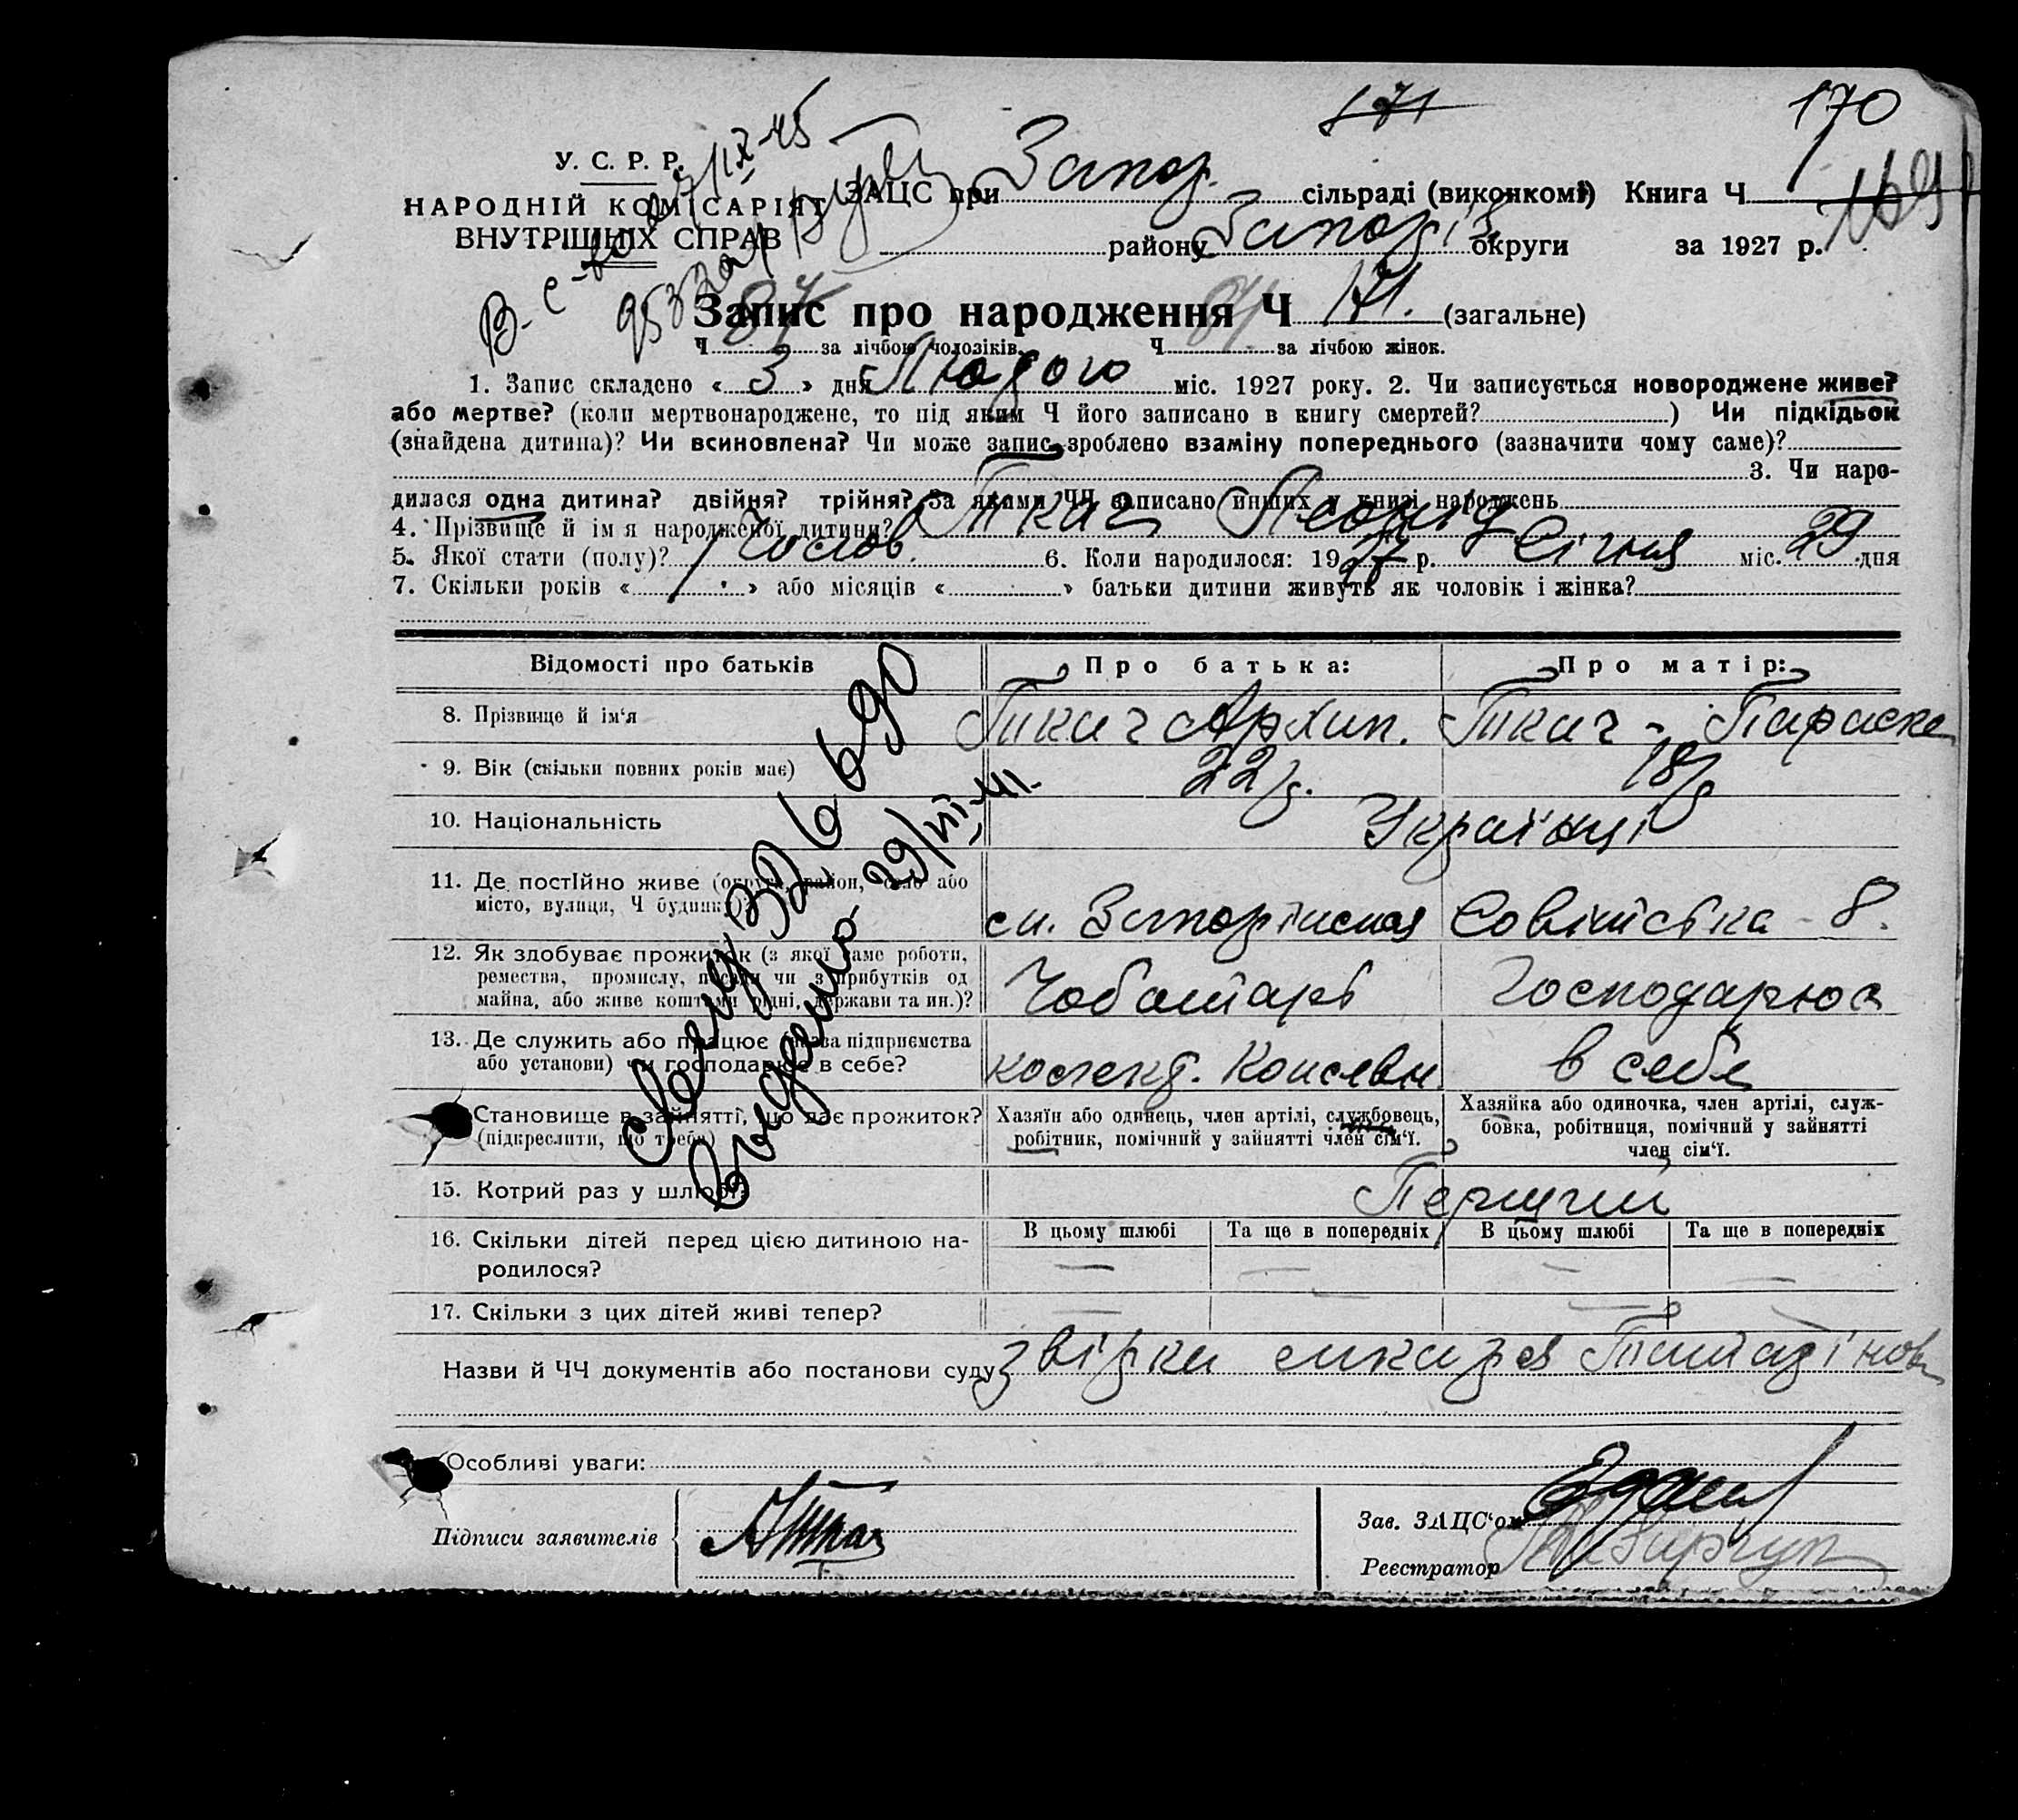 171
170
169
У. С. Р. Р.
НАРОДНІЙ КОМІСАРІЯТ
ВНУТРІШНІХ СПРАВ
ЗАЦС при Запор. сільраді (виконкомі) Книга Ч.
району Запоріз округи за 1927 р.
В. с-во 27/IX-45
Запис про народження Ч 171. (загальне)
Ч 87 за лічбою чоловіків. Ч за лічбою жінок.
1. Запис складено « 3 » дня Лютого міс. 1927 року. 2. Чи записується новороджене живе?
або мертве? (коли мертвонароджене, то під яким Ч його записано в книгу смертей? ) Чи підкідьок
(знайдена дитина)? Чи всиновлена? Чи може запис зроблено взаміну попереднього (зазначити чому саме)?
3. Чи наро-
дилася одна дитина? двійня? трійня? За якими ЧЧ записано инших у книзі народжень
4. Прізвище й ім я народженої дитини? Ткач Леонід
5. Якої стати (полу)? Чолов. 6. Коли народилося: 1927 р. Січня міс. 29 дня
7. Скільки років « » або місяців « » батьки дитини живуть як чоловік і жінка?
Відомості про батьків Про батька: Про матір:
8. Прізвище й ім‘я Ткач Архип. Ткач - Параска
9. Вік (скільки повних років має) 22 р. 18 р
10. Національність Українці
11. Де постійно живе (округа, район, село або
місто, вулиця, Ч будинку)? ст. Запоріжжя Совітська - 8.
12. Як здобуває прожиток (з якої саме роботи,
ремества, промислу, посади чи з прибутків од
майна, або живе коштами рідні, держави та ин.)? Чоботарь Господарює
13. Де служить або працює (назва підприємства
або установи) чи господарює в себе? в себе
Становище в зайнятті, що дає прожиток?
(підкреслити, що треба)
Хазяїн або одинець, член артілі, службовець,
робітник, помічний у зайнятті член сім‘ї.
Хазяйка або одиночка, член артілі, служ-
бовка, робітниця, помічний у зайнятті
член сім‘ї.
15. Котрий раз у шлюбі? Перший
16. Скільки дітей перед цією дитиною на-
родилося?
В цьому шлюбі Та ще в попередніх В цьому шлюбі Та ще в попередніх
17. Скільки з цих дітей живі тепер?
Назви й ЧЧ документів або постанови суду
Видано 29/VII-41.
Особливі уваги:
Підписи заявителів АТкач
Зав. ЗАЦС‘ом
Реєстратор